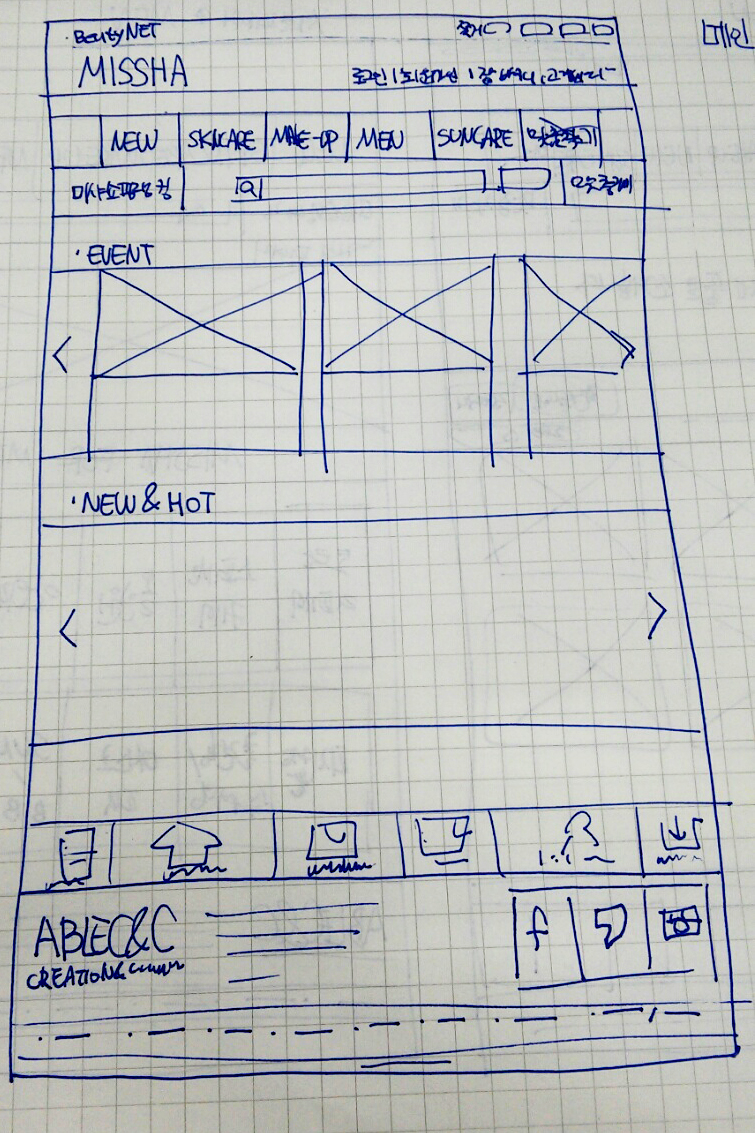 메인
· BeautyNET
MISSHA
로그인 | 회원가입 | 장바구니 | 고객센터
NEW SKINCARE MAKE-UP MEN SUNCARE
· EVENT
· NEW & HOT
ABLEC&C
CREATION&
f